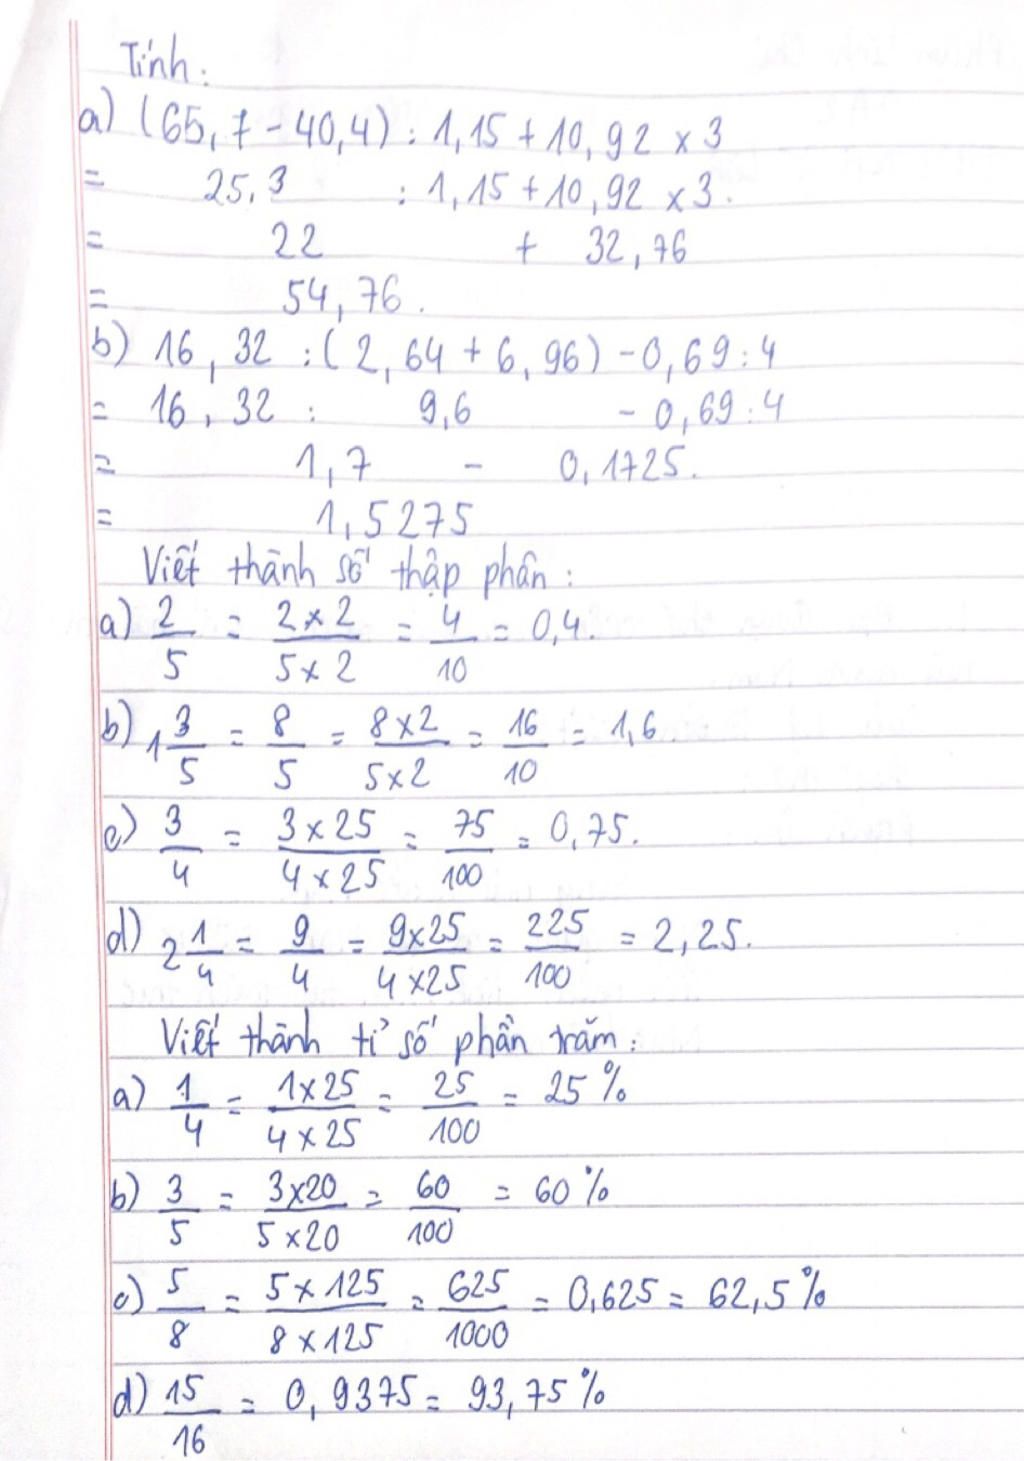 Tính:
a) (65,7 - 40,4) : 1,15 + 10,92 x 3
= 25,3 : 1,15 + 10,92 x 3.
= 22 + 32,76
= 54,76.
b) 16,32 : (2,64 + 6,96) - 0,69 : 4
= 16,32 : 9,6 - 0,69 : 4
= 1,7 - 0,1725.
= 1,5275
Viết thành số thập phân:
a) 2/5 = 2x2/5x2 = 4/10 = 0,4.
b) 1 3/5 = 8/5 = 8x2/5x2 = 16/10 = 1,6
c) 3/4 = 3x25/4x25 = 75/100 = 0,75.
d) 2 1/4 = 9/4 = 9x25/4x25 = 225/100 = 2,25.
Viết thành tỉ số phần trăm:
a) 1/4 = 1x25/4x25 = 25/100 = 25%
b) 3/5 = 3x20/5x20 = 60/100 = 60%
c) 5/8 = 5x125/8x125 = 625/1000 = 0,625 = 62,5%
d) 15/16 = 0,9375 = 93,75%